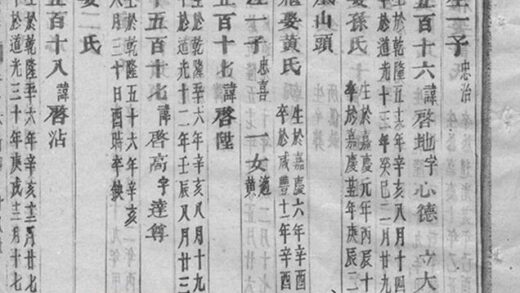 生一子 忠治
五百十六 諱啓地 字心德 立大
生於乾隆五十六年辛亥八月十四
卒於道光十三年癸巳二月
娶孫氏 生於嘉慶元年丙辰十
卒於嘉慶廿五年庚辰二
山頭
娶黃氏 生於嘉慶六年辛酉
卒於咸豐十一年辛酉
生一子 忠喜 一女 適黃
五百十七 諱啓陞
生於乾隆五十六年辛亥八月十九
卒於道光十二年壬辰八月廿三
五百十七 諱啓高 字達尊
生於乾隆五十六年辛亥
八月三十日酉時 卒缺
娶二氏
五百十八 諱啓沾
生於乾隆五十六年辛亥十二月十七
於道光三十年庚戌十二月十七